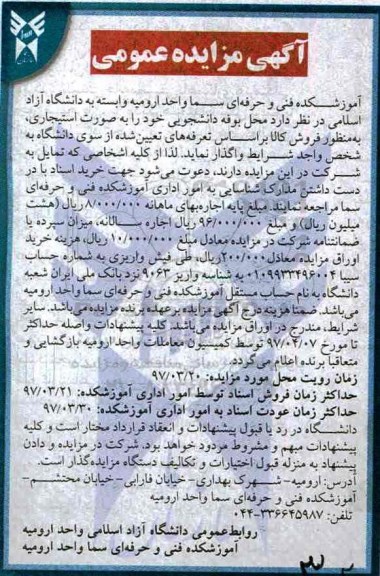 آگهی مزایده عمومی
آموزشکده فنی و حرفه‌ای سما واحد ارومیه وابسته به دانشگاه آزاد
اسلامی در نظر دارد محل بوفه دانشجویی خود را به صورت استیجاری،
به‌منظور فروش کالا براساس تعرفه‌های تعیین‌شده از سوی دانشگاه به
شخص واجد شرایط واگذار نماید. لذا از کلیه اشخاصی که تمایل به
شرکت در این مزایده دارند، دعوت می‌شود جهت خرید اسناد با در
دست داشتن مدارک شناسایی به امور اداری آموزشکده فنی و حرفه‌ای
سما مراجعه نمایند. مبلغ پایه اجاره‌بهای ماهانه ۸/۰۰۰/۰۰۰ ریال (هشت
میلیون ریال) و مبلغ ۹۶/۰۰۰/۰۰۰ ریال اجاره سالانه، میزان سپرده یا
ضمانتنامه شرکت در مزایده معادل مبلغ ۱۰/۰۰۰/۰۰۰ ریال، هزینه خرید
اوراق مزایده معادل ۲۰۰/۰۰۰ریال، طی فیش واریزی به شماره حساب
سیبا ۰۱۰۹۹۳۳۴۹۶۰۰۴ به شناسه واریز ۹۰۶۳ نزد بانک ملی ایران شعبه
دانشگاه به نام حساب مستقل آموزشکده فنی و حرفه‌ای سما واحد ارومیه
می‌باشد. ضمنا هزینه درج آگهی مزایده برعهده برنده مزایده می‌باشد. سایر
شرایط، مندرج در اوراق مزایده می‌باشد. کلیه پیشنهادات واصله حداکثر
تا مورخ ۹۷/۰۴/۰۷ توسط کمیسیون معاملات واحد ارومیه بازگشایی و
متعاقبا برنده اعلام می‌گردد.
زمان رویت محل مورد مزایده: ۹۷/۰۳/۲۰
حداکثر زمان فروش اسناد توسط امور اداری آموزشکده: ۹۷/۰۳/۲۱
حداکثر زمان عودت اسناد به امور اداری آموزشکده: ۹۷/۰۳/۳۰
دانشگاه در رد یا قبول پیشنهادات و انعقاد قرارداد مختار است و کلیه
پیشنهادات مبهم و مشروط مردود خواهد بود. شرکت در مزایده و دادن
پیشنهاد به منزله قبول اختیارات و تکالیف دستگاه مزایده‌گذار است.
آدرس: ارومیه–شهرک بهداری–خیابان فارابی–خیابان محتشم–
آموزشکده فنی و حرفه‌ای سما واحد ارومیه
تلفن: ۳۳۶۶۴۵۹۸۷-۰۴۴
روابط عمومی دانشگاه آزاد اسلامی واحد ارومیه
آموزشکده فنی و حرفه‌ای سما واحد ارومیه